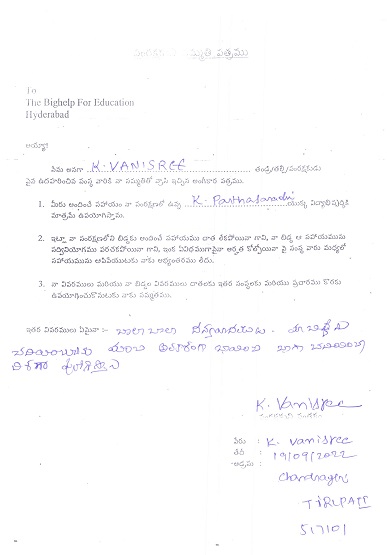 సంరక్షకుని సమ్మతి పత్రము
To
The Bighelp For Education
Hyderabad
అయ్యా!
నేను అనగా K. VANISREE తండ్రి/తల్లి/సంరక్షకుడు
పైన ఉదహరించిన సంస్థ వారికి నా సమ్మతితో వ్రాసి ఇచ్చిన అంగీకార పత్రము.
1. మీరు అందించే సహాయం నా సంరక్షణలో ఉన్న K. Parthasaradhi యొక్క విద్యాభివృద్ధికి
మాత్రమే ఉపయోగిస్తాను.
2. ఇట్లా నా సంరక్షణలోని బిడ్డకు అందించే సహాయము దాత లేకపోయినా గాని, నా బిడ్డ ఆ సహాయమును
సద్వినియోగము పరచకపోయినా గాని, ఇంక ఏవిధముగానైనా అర్హత కోల్పోయినా పై సంస్థ వారు మధ్యలో
సహాయమును ఆపివేయుటకు నాకు అభ్యంతరము లేదు.
3. నా వివరములు మరియు నా బిడ్డల వివరములు దాతలకు ఇతర సంస్థలకు మరియు ప్రచారము కొరకు
ఉపయోగించుకొనుటకు నాకు సమ్మతము.
ఇతర వివరములు ఏమైనా :- చాలా చాలా ధన్యవాదములు.
K. Vanisree
పేరు : K. Vanisree
తేదీ : 19/09/2022
అడ్రసు : Chandragiri
TIRUPATI
517101